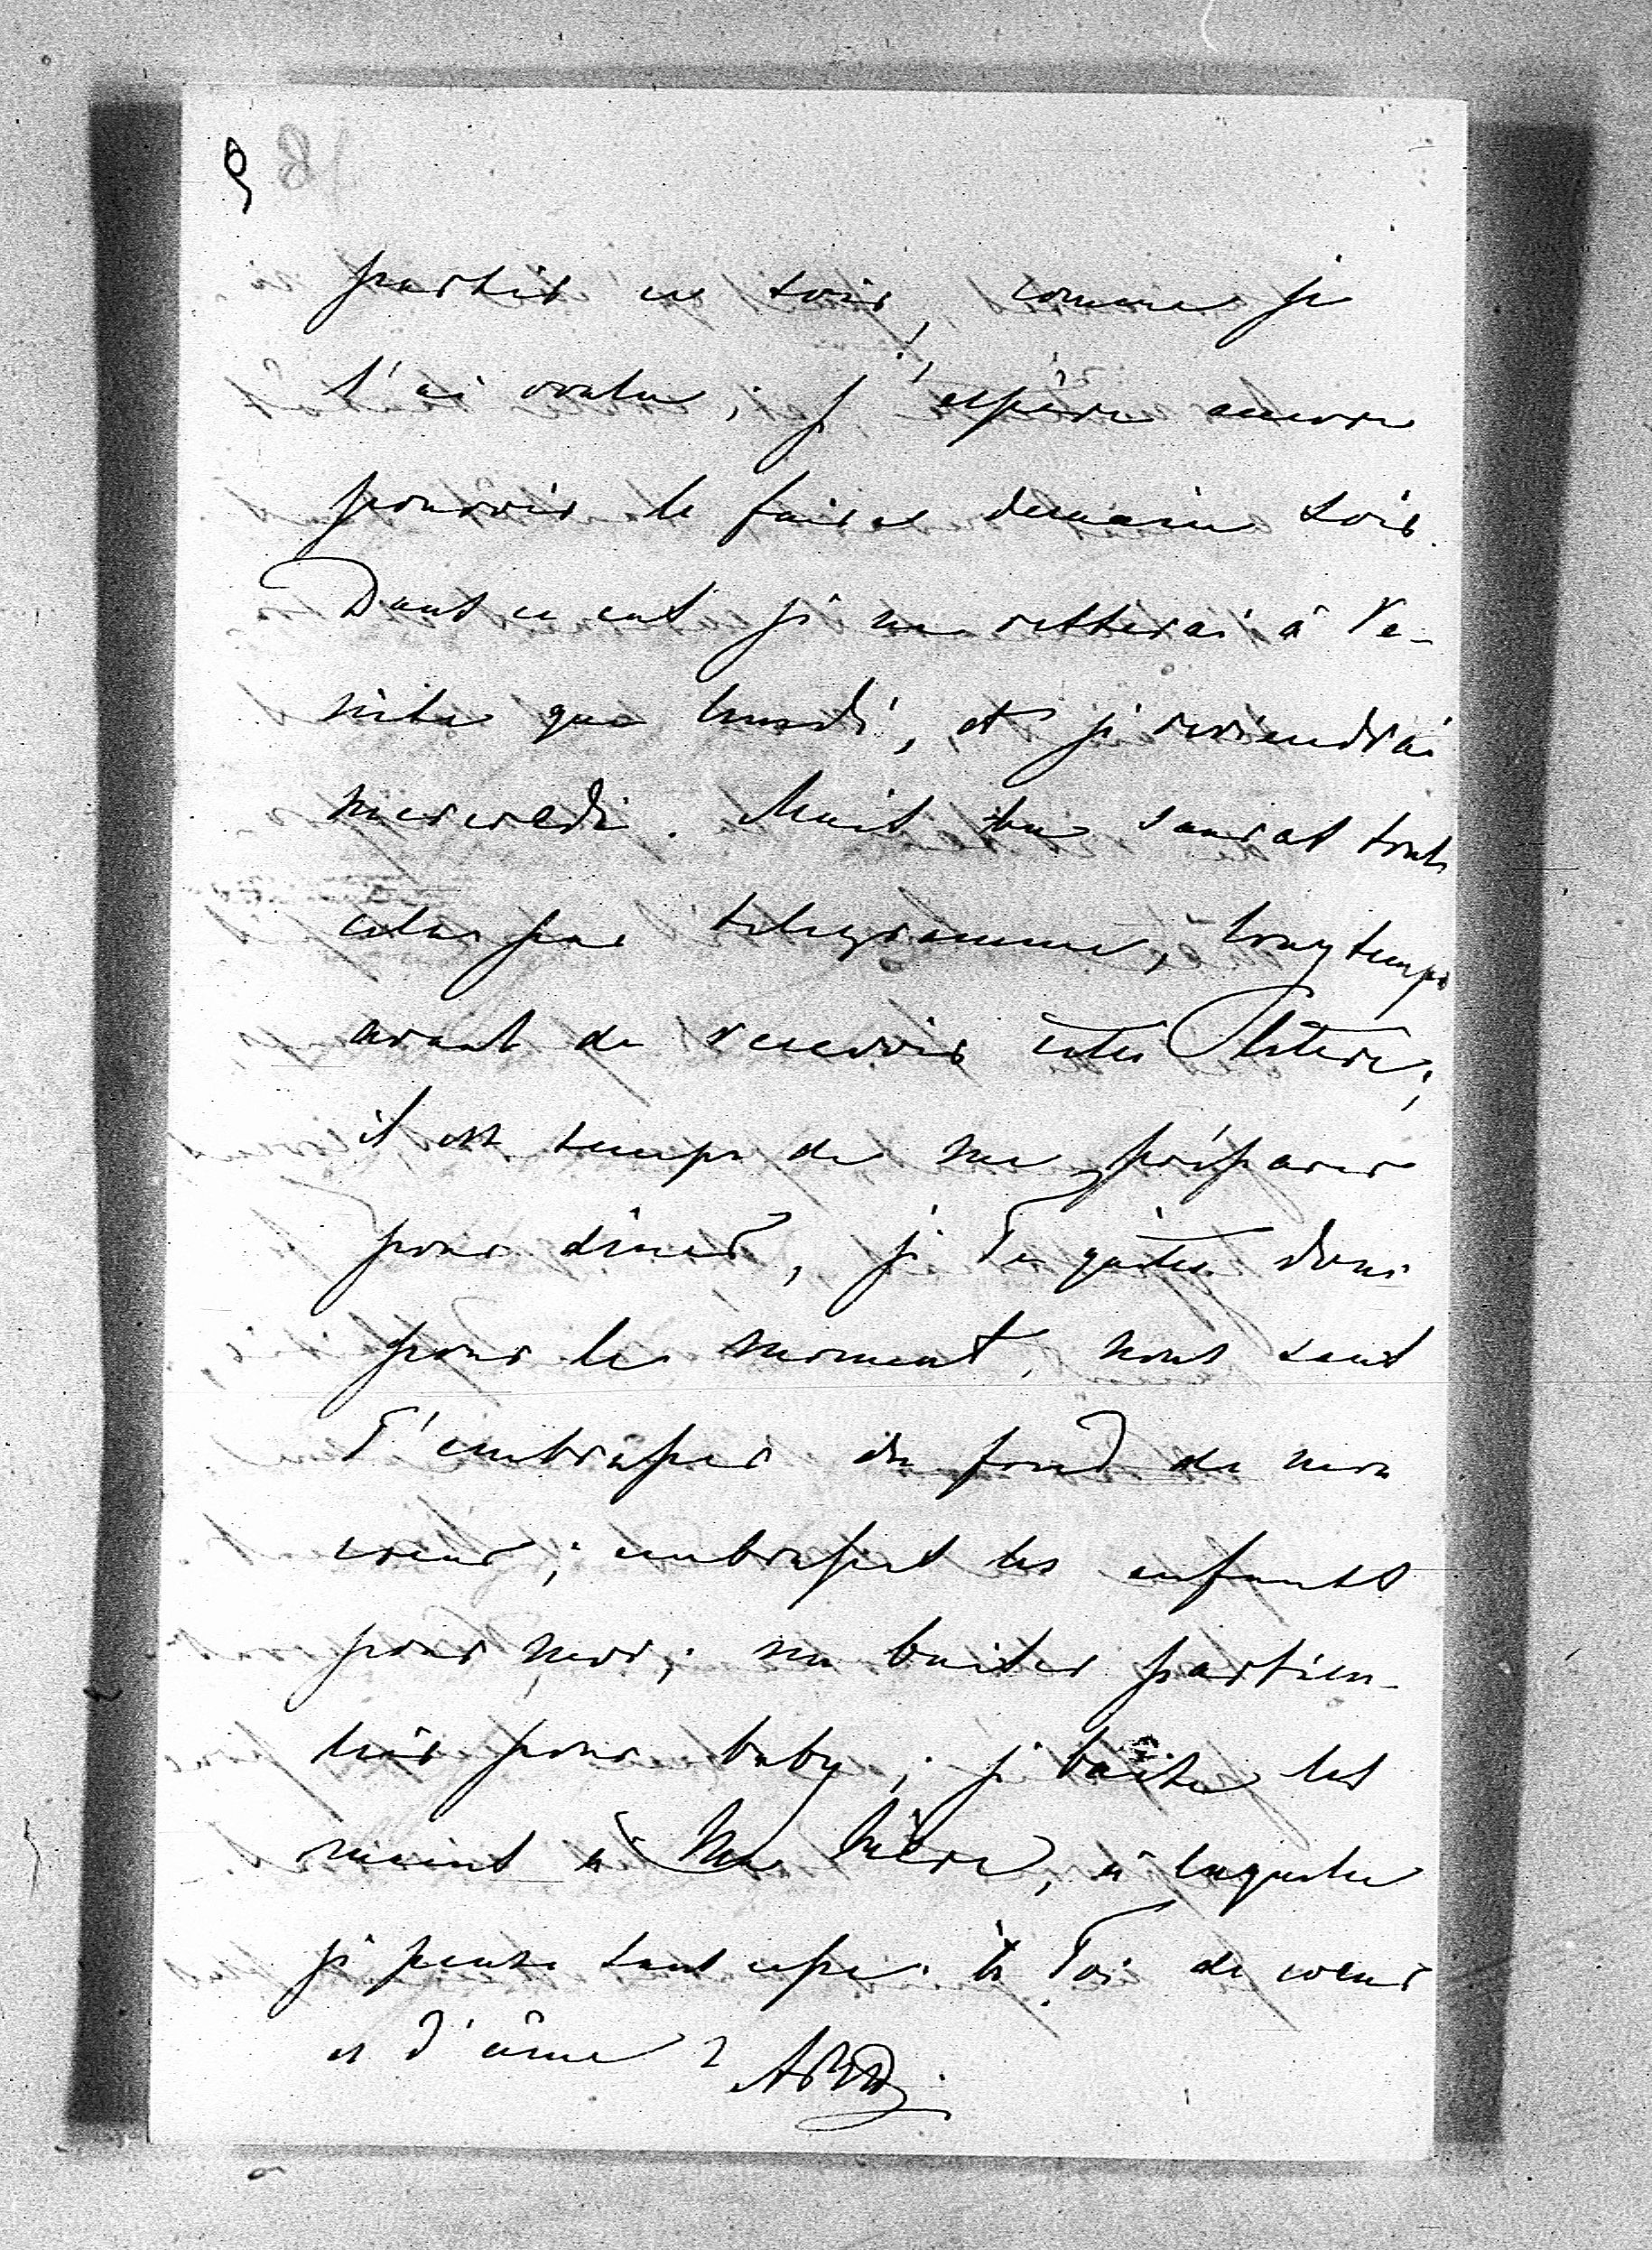 partir ce soir, comme je
l'ai voulu; j'espère encore
pouvoir le faire demain soir.
Dans ce cas je ne resterai à Ve-
nise que lundi, et je reviendrai
mercredi. Mais tu sauras tout
cela par telegramme, longtemps
avant de recevoir cette lettre;
il est temps de me préparer
pour diner, je Te quitte donc
pour le moment, non sans
T'embrasser du fond de mon
coeur; embrasses les enfants
pour moi; un baiser particu-
lier pour baby; je baise les
mains à Ma Mère, à laquelle
je pense sans cesse. à Toi de coeur
et d'âme